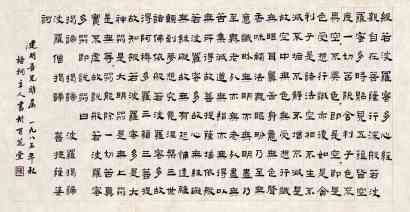 般若波羅蜜多心經
觀自在菩薩行深般若波羅蜜
多時照見五蘊皆空度一切苦
厄舍利子色不異空空不異色
色即是空空即是色受想行識
亦復如是舍利子是諸法空相
不生不滅不垢不淨不增不減
是故空中無色無受想行識無
眼耳鼻舌身意無色聲香味觸
法無眼界乃至無意識界無無
明亦無無明盡乃至無老死亦
無老死盡無苦集滅道無智亦
無得以無所得故菩提薩埵依
般若波羅蜜多故心無罣礙無
罣礙故無有恐怖遠離顛倒夢
想究竟涅槃三世諸佛依般若
波羅蜜多故得阿耨多羅三藐
三菩提故知般若波羅蜜多是
大神咒是大明咒是無上咒是
無等等咒能除一切苦真實不
虛故說般若波羅蜜多咒即說
咒曰揭諦揭諦 波羅揭諦
波羅僧揭諦 菩提薩婆訶
一九八五年秋
主人書於百花堂